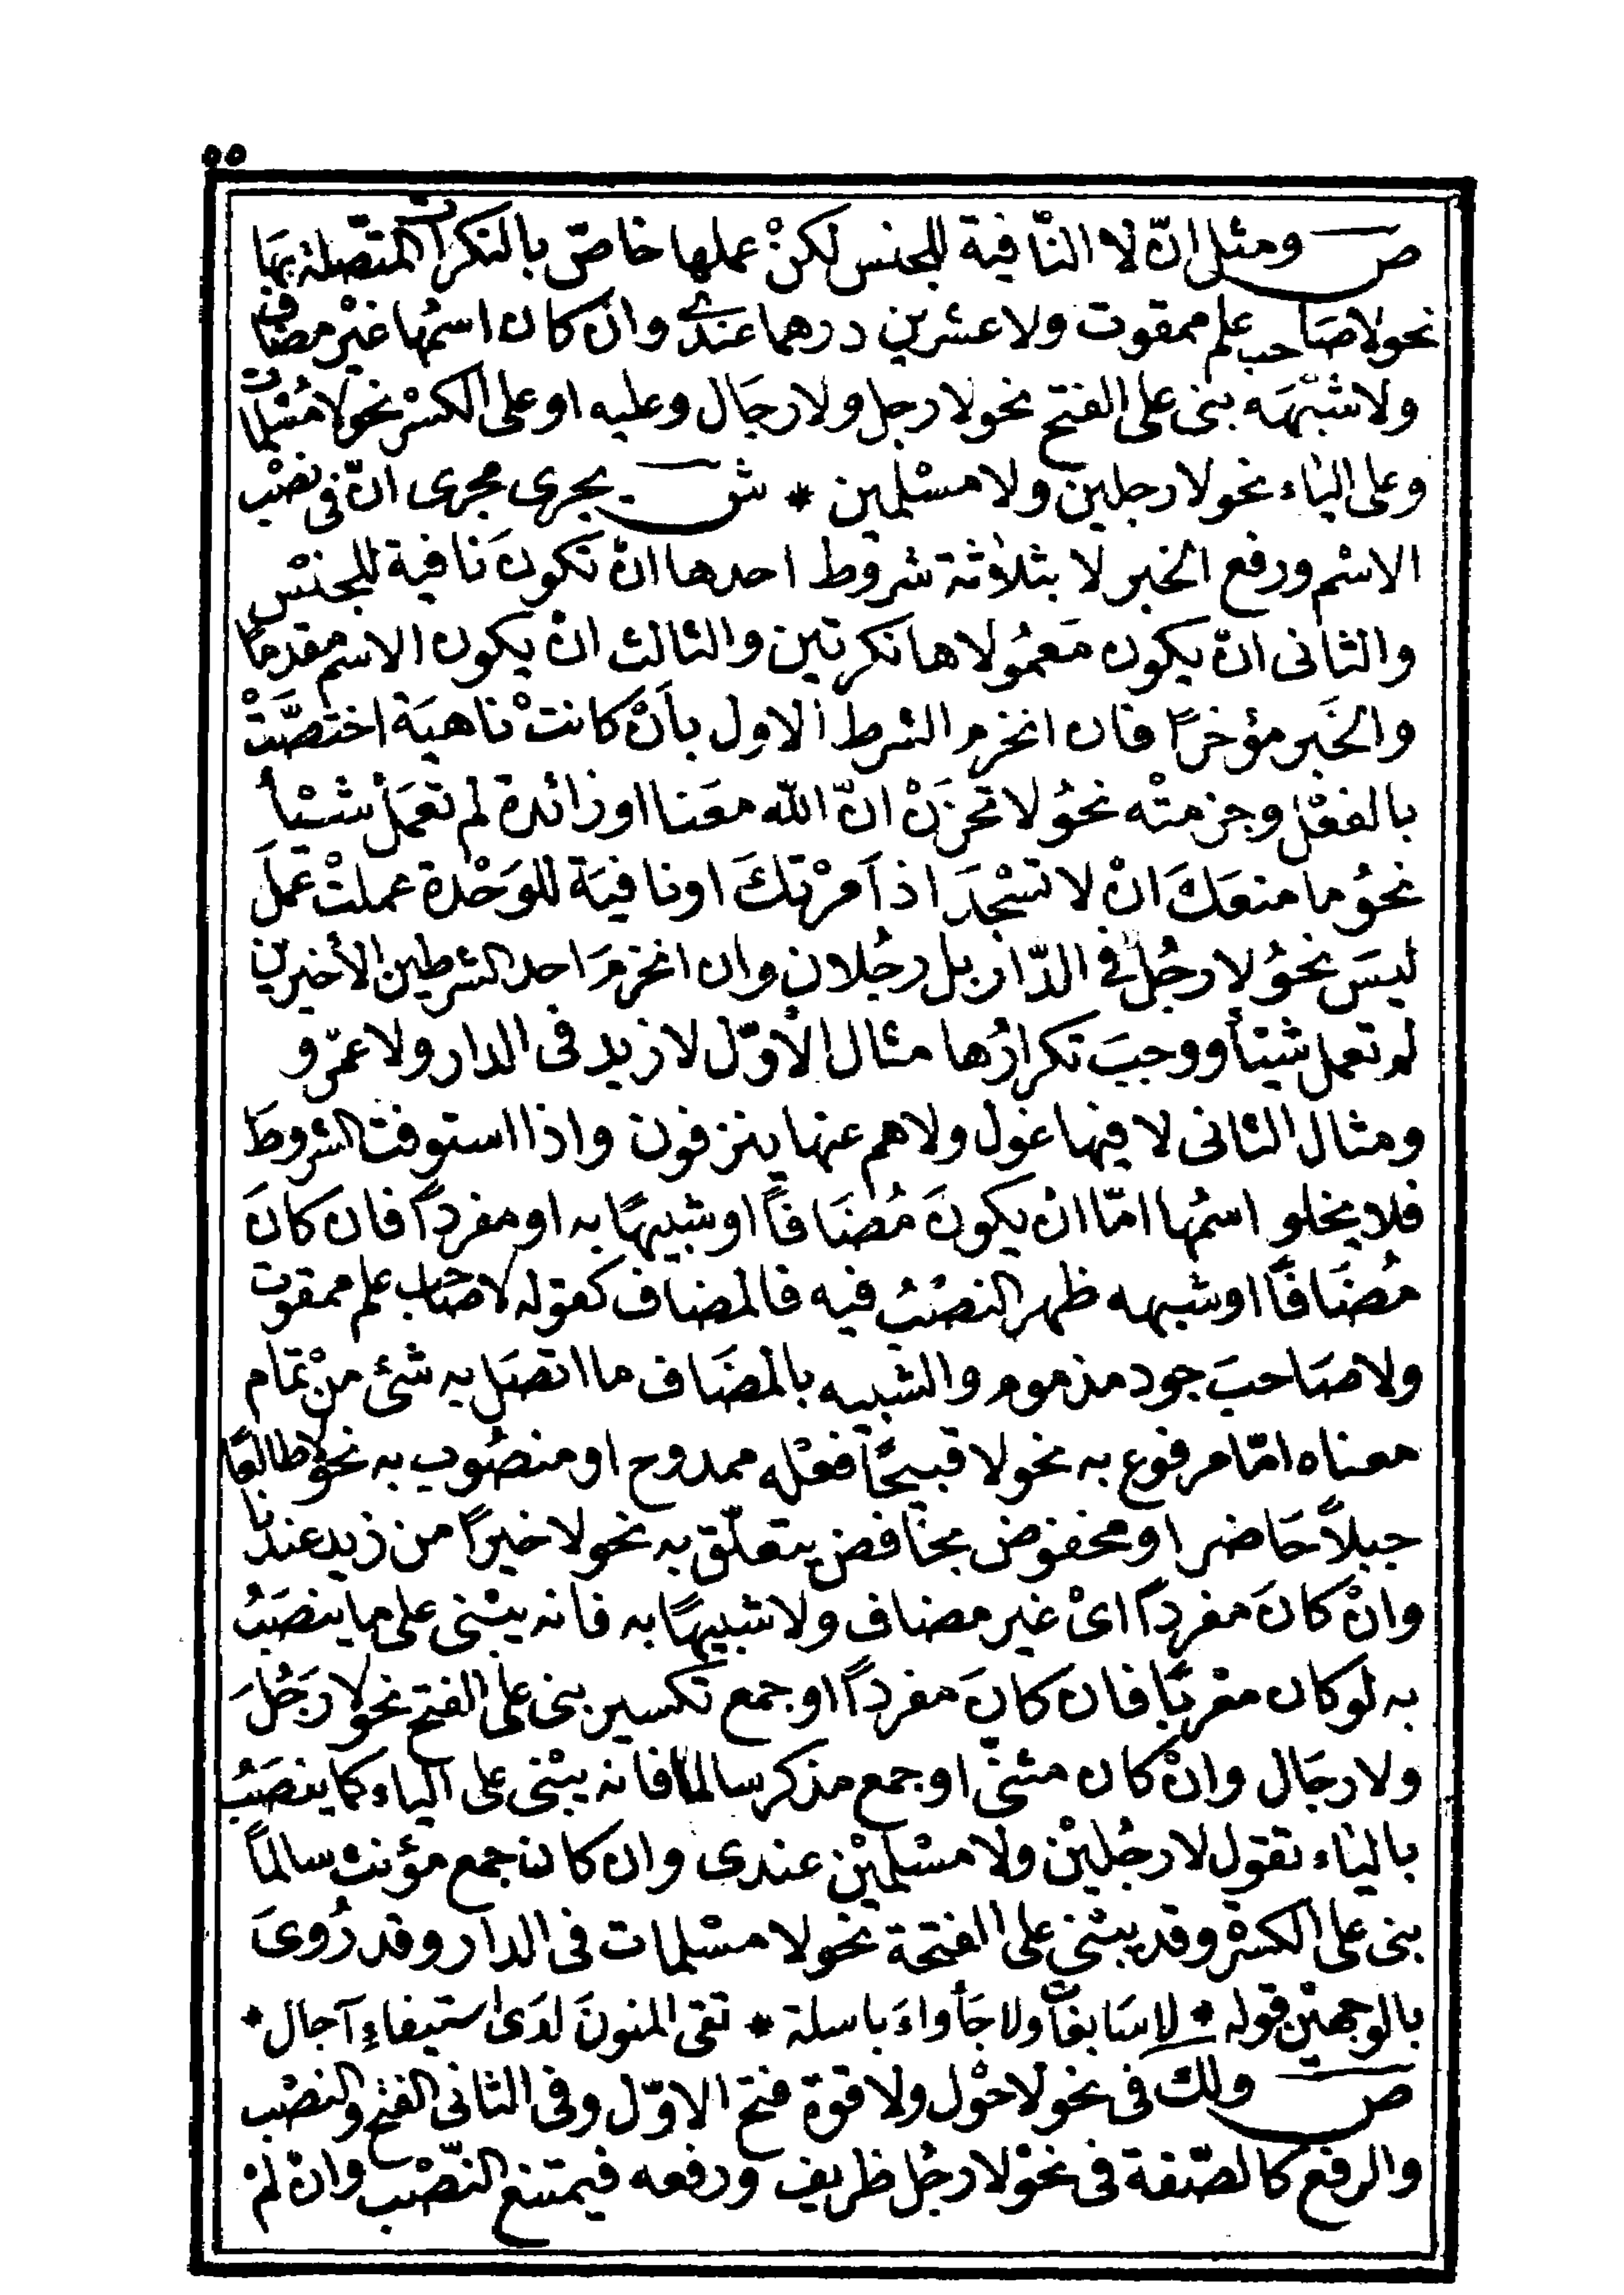 ٥٥
ص ومثل انّ لا النّافية للجنس لكنْ عملها خاصّ بالنكرات المتصّلة بهَا
نحو لا صَاحب علم ممقوت ولا عشرين درهما عندى وانْ كان اسمُها غيْر مضاف
ولا شبْهَه بنى على الفتح نحو لا رجل ولا رجَال وعليه او على الكسْر نحو لا مُسْلمات
وعلى اليَاء نحو لا رجلين ولا مسْلمين * ش يجرى مجرى انّ فى نصْب
الاسْم ورفع الخبر لا بثلاثة شروط احدها انْ تكونَ نافية للجنْس
والثانى انْ يكون مَعمُولاها نكرتين والثالث انْ يكون الاسم مقدمًا
والخَبر مؤخرًا فان انخرم الشرط الاول بأنْ كانتْ ناهيَة اختصَّتْ
بالفعْل وجزمتْه نحوُ لا تحزَنْ انّ الله معَنا او زائدة لم تعمَلْ شيْأ
نحوُ ما منعَكَ انْ لا تسْجدَ اذ اَمرْتكَ او نافيَة للوَحْدة عملتْ عملَ
ليسَ نحوُ لا رجُلٌ فى الدّار بل رجُلان وان انخرمَ احد الشرطين الأخيرين
لم تعمل شيْأ ووجبَ تكرارُها مثال الأوّل لا زيد فى الدار ولا عمْرو
ومثال الثانى لا فيها غول ولا هم عنها ينزفون واذا استوفت الشروطَ
فلا يخلو اسمُها امّا انْ يكونَ مُضَافاً او شبيهًا به او مفردًا فان كانَ
مُضَافًا او شبهه ظهر النصْبُ فيه فالمضاف كقوله لا صَاحب علم ممقوت
ولا صَاحبَ جود مذموم والشبيه بالمضَاف ما اتصَل به شئ منْ تمام
معناه امّا مرفوع به نحو لا قبيحًا فعْله ممدوح او منصُوب به نحو لا طالعًا
جبلاً حَاضر او مخفوض بخافض يتعلّق به نحو لا خيرًا من زيد عندنا
وانْ كانَ مفردًا اىْ غير مضاف ولا شبيهًا به فانه يبْنى على ما ينصَبُ
به لو كان معْربًا فان كانَ مفردًا او جمع تكسير بنى على الفتح نحو لا رَجُلَ
ولا رجَال وانْ كان مثنّى او جمع مذكر سالمًا فانه يبْنى على الياء كما ينصَبُ
باليَاء تقول لا رجُليْن ولا مسْلميْن عندى وان كان جمع مؤنث سالمًا
بنى على الكسْر وقد يبْنى على الفتحة نحو لا مسْلمات فى الدار وقد رُوىَ
بالوجهيْن قوله * لا سَابغاَت ولا جَأواءَ باسلة * تقى المنونَ لدَى استيفاءِ آجال *
ص ولك فى نحو لا حوْل ولا قوة فتح الاوّل وفى الثانى الفتح والنصْب
والرفع كالصّفة فى نحوْ لا رجُل ظريف ورفعه فيمتنع النّصْب وانْ لمْ